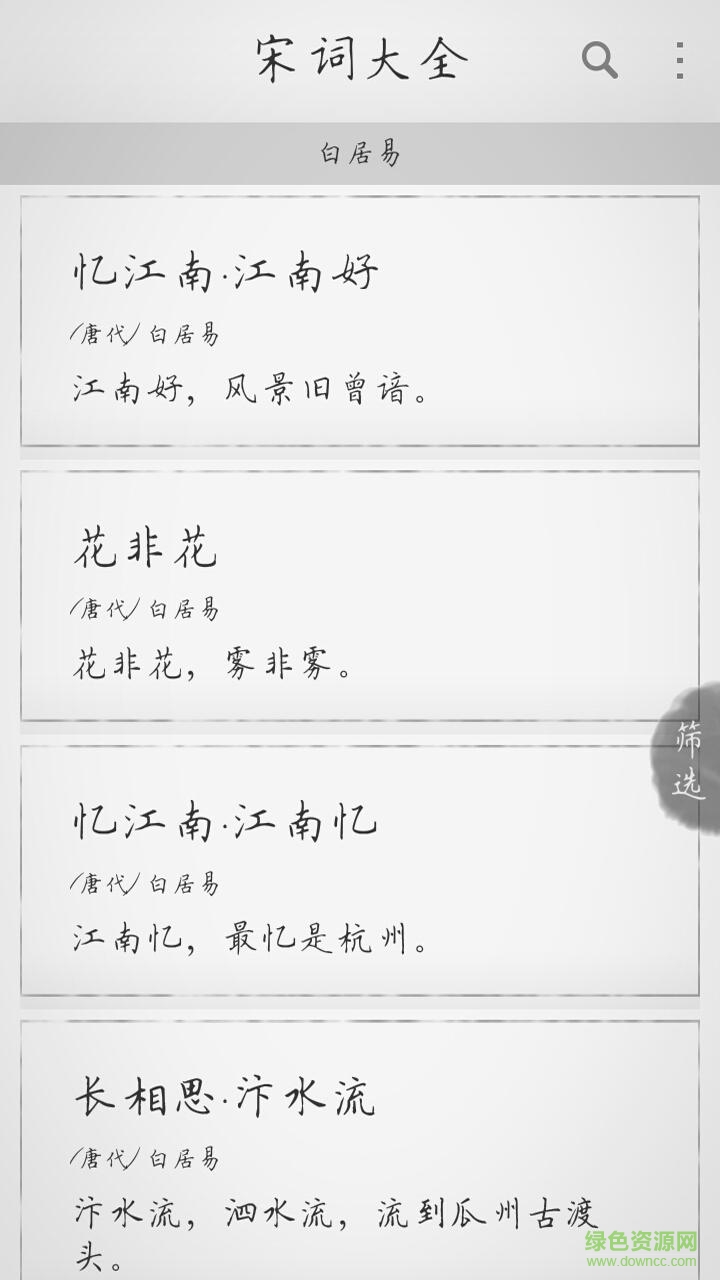 宋词大全
白居易
忆江南·江南好
/唐代/ 白居易
江南好，风景旧曾谙。
花非花
/唐代/ 白居易
花非花，雾非雾。
筛选
忆江南·江南忆
/唐代/ 白居易
江南忆，最忆是杭州。
长相思·汴水流
/唐代/ 白居易
汴水流，泗水流，流到瓜州古渡
头。
绿色资源网
www.downcc.com